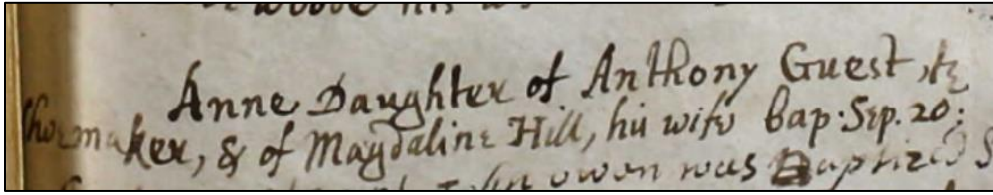 his
Anne Daughter of Anthony Guest
shoemaker, & of Magdaline Hill, his wife bap: Sep. 20:
owen was Baptized